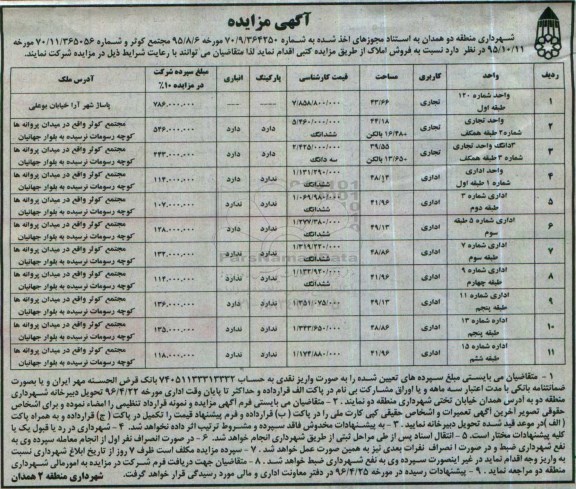 آگهی مزایده
شهرداری منطقه دو همدان به استناد مجوزهای اخذ شده به شماره ۷۰/۹/۳۶۴۲۵۰ مورخه ۹۵/۸/۶ مجتمع کوثر و شماره ۷۰/۱۱/۳۶۵۰۵۶ مورخه
۹۵/۱۰/۱۱ در نظر دارد نسبت به فروش املاک از طریق مزایده کتبی اقدام نماید لذا متقاضیان می توانند با رعایت شرایط ذیل در مزایده شرکت نمایند.
ردیف واحد کاربری مساحت قیمت کارشناسی پارکینگ انباری مبلغ سپرده شرکت در مزایده ۱۰٪ آدرس ملک
۱ واحد شماره ۱۲۰ طبقه اول تجاری ۴۳/۶۶ ۷/۸۵۸/۸۰۰/۰۰۰ ---- ---- ۷۸۶.۰۰۰.۰۰۰ پاساژ شهر آرا خیابان بوعلی
۲ واحد تجاری شماره۲ طبقه همکف تجاری ۴۴/۱۸ ۱۶/۴۸۰ بالکن ۵/۴۶۰/۰۰۰/۰۰۰ ششدانگ دارد دارد ۵۴۶.۰۰۰.۰۰۰ مجتمع کوثر واقع در میدان پروانه ها کوچه رسومات نرسیده به بلوار جهانیان
۳ ۳دانگ واحد تجاری شماره ۳ طبقه همکف تجاری ۳۹/۵۵ ۱۳/۶۵۰ بالکن ۲/۴۲۵/۰۰۰/۰۰۰ سه دانگ دارد دارد ۲۴۳.۰۰۰.۰۰۰ مجتمع کوثر واقع در میدان پروانه ها کوچه رسومات نرسیده به بلوار جهانیان
۴ واحد اداری شماره ۱ طبقه اول اداری ۴۸/۱۴ ۱/۱۳۱/۲۹۰/۰۰۰ ششدانگ ندارد ندارد ۱۱۴.۰۰۰.۰۰۰ مجتمع کوثر واقع در میدان پروانه ها کوچه رسومات نرسیده به بلوار جهانیان
۵ اداری شماره ۳ طبقه دوم اداری ۴۱/۹۶ ۱/۰۶۹/۹۸۰/۰۰۰ ششدانگ ندارد ندارد ۱۰۷.۰۰۰.۰۰۰ مجتمع کوثر واقع در میدان پروانه ها کوچه رسومات نرسیده به بلوار جهانیان
۶ اداری شماره ۵ طبقه سوم اداری ۴۹/۱۳ ۱/۲۷۷/۳۸۰/۰۰۰ ششدانگ ندارد دارد ۱۲۸.۰۰۰.۰۰۰ مجتمع کوثر واقع در میدان پروانه ها کوچه رسومات نرسیده به بلوار جهانیان
۷ اداری شماره ۷ طبقه سوم اداری ۴۸/۸۶ ۱/۳۱۹/۲۲۰/۰۰۰ ششدانگ ندارد ندارد ۱۳۲.۰۰۰.۰۰۰ مجتمع کوثر واقع در میدان پروانه ها کوچه رسومات نرسیده به بلوار جهانیان
۸ اداری شماره ۹ طبقه چهارم اداری ۴۱/۹۶ ۱/۱۳۲/۹۲۰/۰۰۰ ششدانگ ندارد ندارد ۱۱۴.۰۰۰.۰۰۰ مجتمع کوثر واقع در میدان پروانه ها کوچه رسومات نرسیده به بلوار جهانیان
۹ اداری شماره ۱۱ طبقه پنجم اداری ۴۹/۱۳ ۱/۳۵۱/۰۷۵/۰۰۰ ندارد ندارد ۱۳۶.۰۰۰.۰۰۰ مجتمع کوثر واقع در میدان پروانه ها کوچه رسومات نرسیده به بلوار جهانیان
۱۰ اداره شماره ۱۳ طبقه پنجم اداری ۴۸/۸۶ ۱/۳۴۳/۶۵۰/۰۰۰ ندارد ندارد ۱۳۵.۰۰۰.۰۰۰ مجتمع کوثر واقع در میدان پروانه ها کوچه رسومات نرسیده به بلوار جهانیان
۱۱ اداره شماره ۱۵ طبقه ششم اداری ۴۱/۹۶ ۱/۱۷۴/۸۸۰/۰۰۰ ندارد ندارد ۱۱۸.۰۰۰.۰۰۰ مجتمع کوثر واقع در میدان پروانه ها کوچه رسومات نرسیده به بلوار جهانیان
۱ - متقاضیان می بایستی مبلغ سپرده های تعیین شده را به صورت واریز نقدی به حساب ۷۴۰۵۱۱۳۳۲۱۳۳۳۲ بانک قرض الحسنه مهر ایران و یا بصورت
ضمانتنامه بانکی با مدت اعتبار سه ماهه و یا اوراق مشارکت بی نام در پاکت الف قرارداده و حداکثر تا پایان وقت اداری مورخه ۹۶/۴/۲۲ تحویل دبیرخانه شهرداری
منطقه دو به آدرس همدان خیابان تختی شهرداری منطقه دو نمایند . ۲ - متقاضیان می بایستی فرم آگهی مزایده و نمونه قرارداد تنظیمی را امضاء نموده و برای اشخاص
حقوقی تصویر آخرین آگهی تعمیرات و اشخاص حقیقی کپی کارت ملی را در پاکت (ب) قرارداده و فرم پیشنهاد قیمت را تکمیل در پاکت (ج) قرارداده و به همراه پاکت
(الف )در موعد قید شده تحویل دبیرخانه نمایید . ۳ - به پیشنهادات مخدوش فاقد سپرده و مشروط ترتیب اثر داده نخواهد شد. ۴ - شهرداری در رد یا قبول یک یا
کلیه پیشنهادات مختار است. ۵ - انتقال اسناد پس از طی مراحل ثبتی از طریق شهرداری انجام خواهد شد. ۶ - در صورت انصراف نفر اول از انجام معامله سپرده وی به
نفع شهرداری ضبط و در صورت انصراف نفرات بعدی نیز به همین صورت عمل خواهد شد. ۷ - سپرده مزایده مکلف است ظرف ۷ روز از تاریخ ابلاغ شهرداری نسبت
به واریز وجه اقدام نماید در غیر اینصورت سپرده وی به نفع شهرداری ضبط خواهد شد. ۸ - متقاضیان جهت دریافت فرم شرکت در مزایده به امورمالی شهرداری
منطقه دو مراجعه نماید . ۹ - پیشنهادات رسیده در مورخه ۹۶/۴/۲۵ در دفتر معاونت اداری و مالی مورد رسیدگی قرار خواهد گرفت.
شهرداری منطقه ۲ همدان